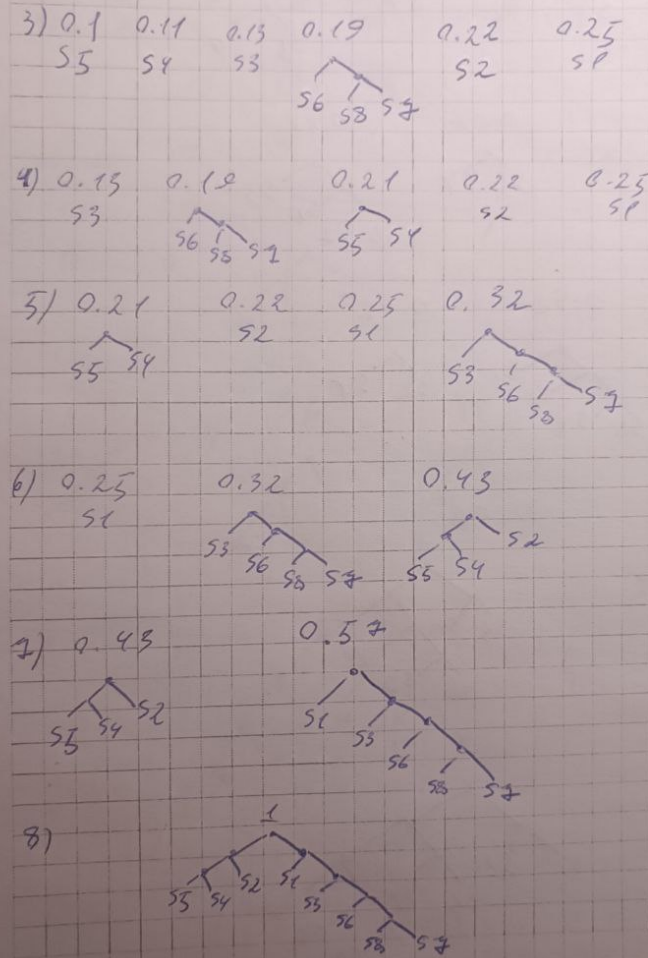 3) 0.1 0.11 0.13 0.19 0.22 0.25
S5 S4 S3 S2 S1
S6 S8 S7
4) 0.13 0.19 0.21 0.22 0.25
S3 S2 S1
S6 S8 S7 S5 S4
5) 0.21 0.22 0.25 0.32
S2 S1
S5 S4 S3 S6 S8 S7
6) 0.25 0.32 0.43
S1
S3 S6 S8 S7 S5 S4 S2
7) 0.43 0.57
S5 S4 S2 S1 S3 S6 S8 S7
8) 1
S5 S4 S2 S1 S3 S6 S8 S7